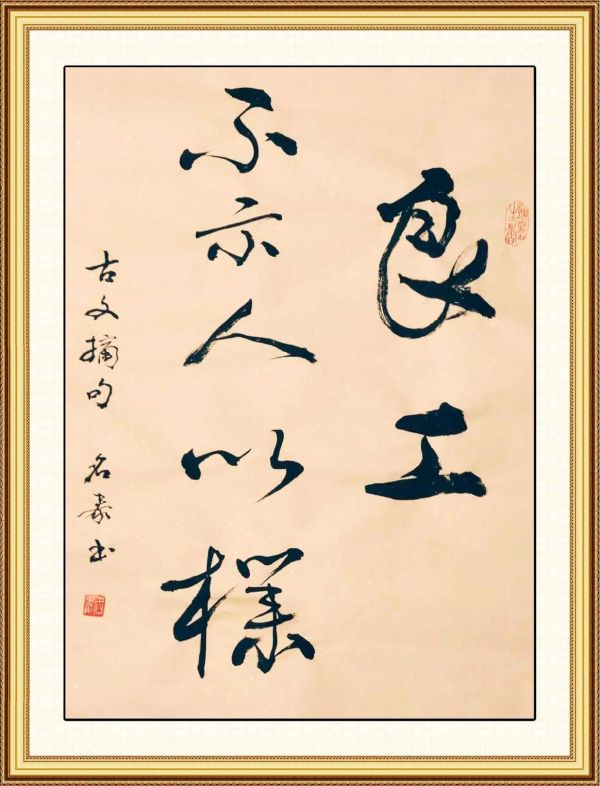 良工
不示人以樸
古文摘句 名豪书